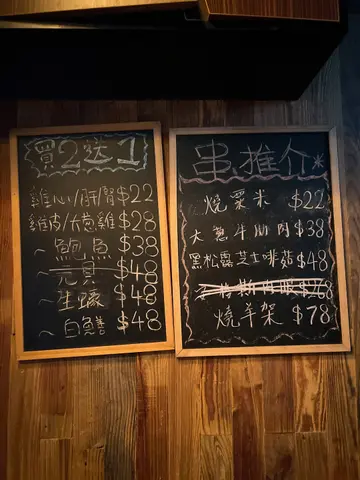 買2送1
雞心/肝/腎$22
雞皮/大葱雞$28
~鮑魚$38
~元貝$48
~生蠔$48
~白鱔$48
串推介*
燒粟米 $22
大葱牛肋肉$38
黑松露芝士啡菇$48
燒羊架 $78